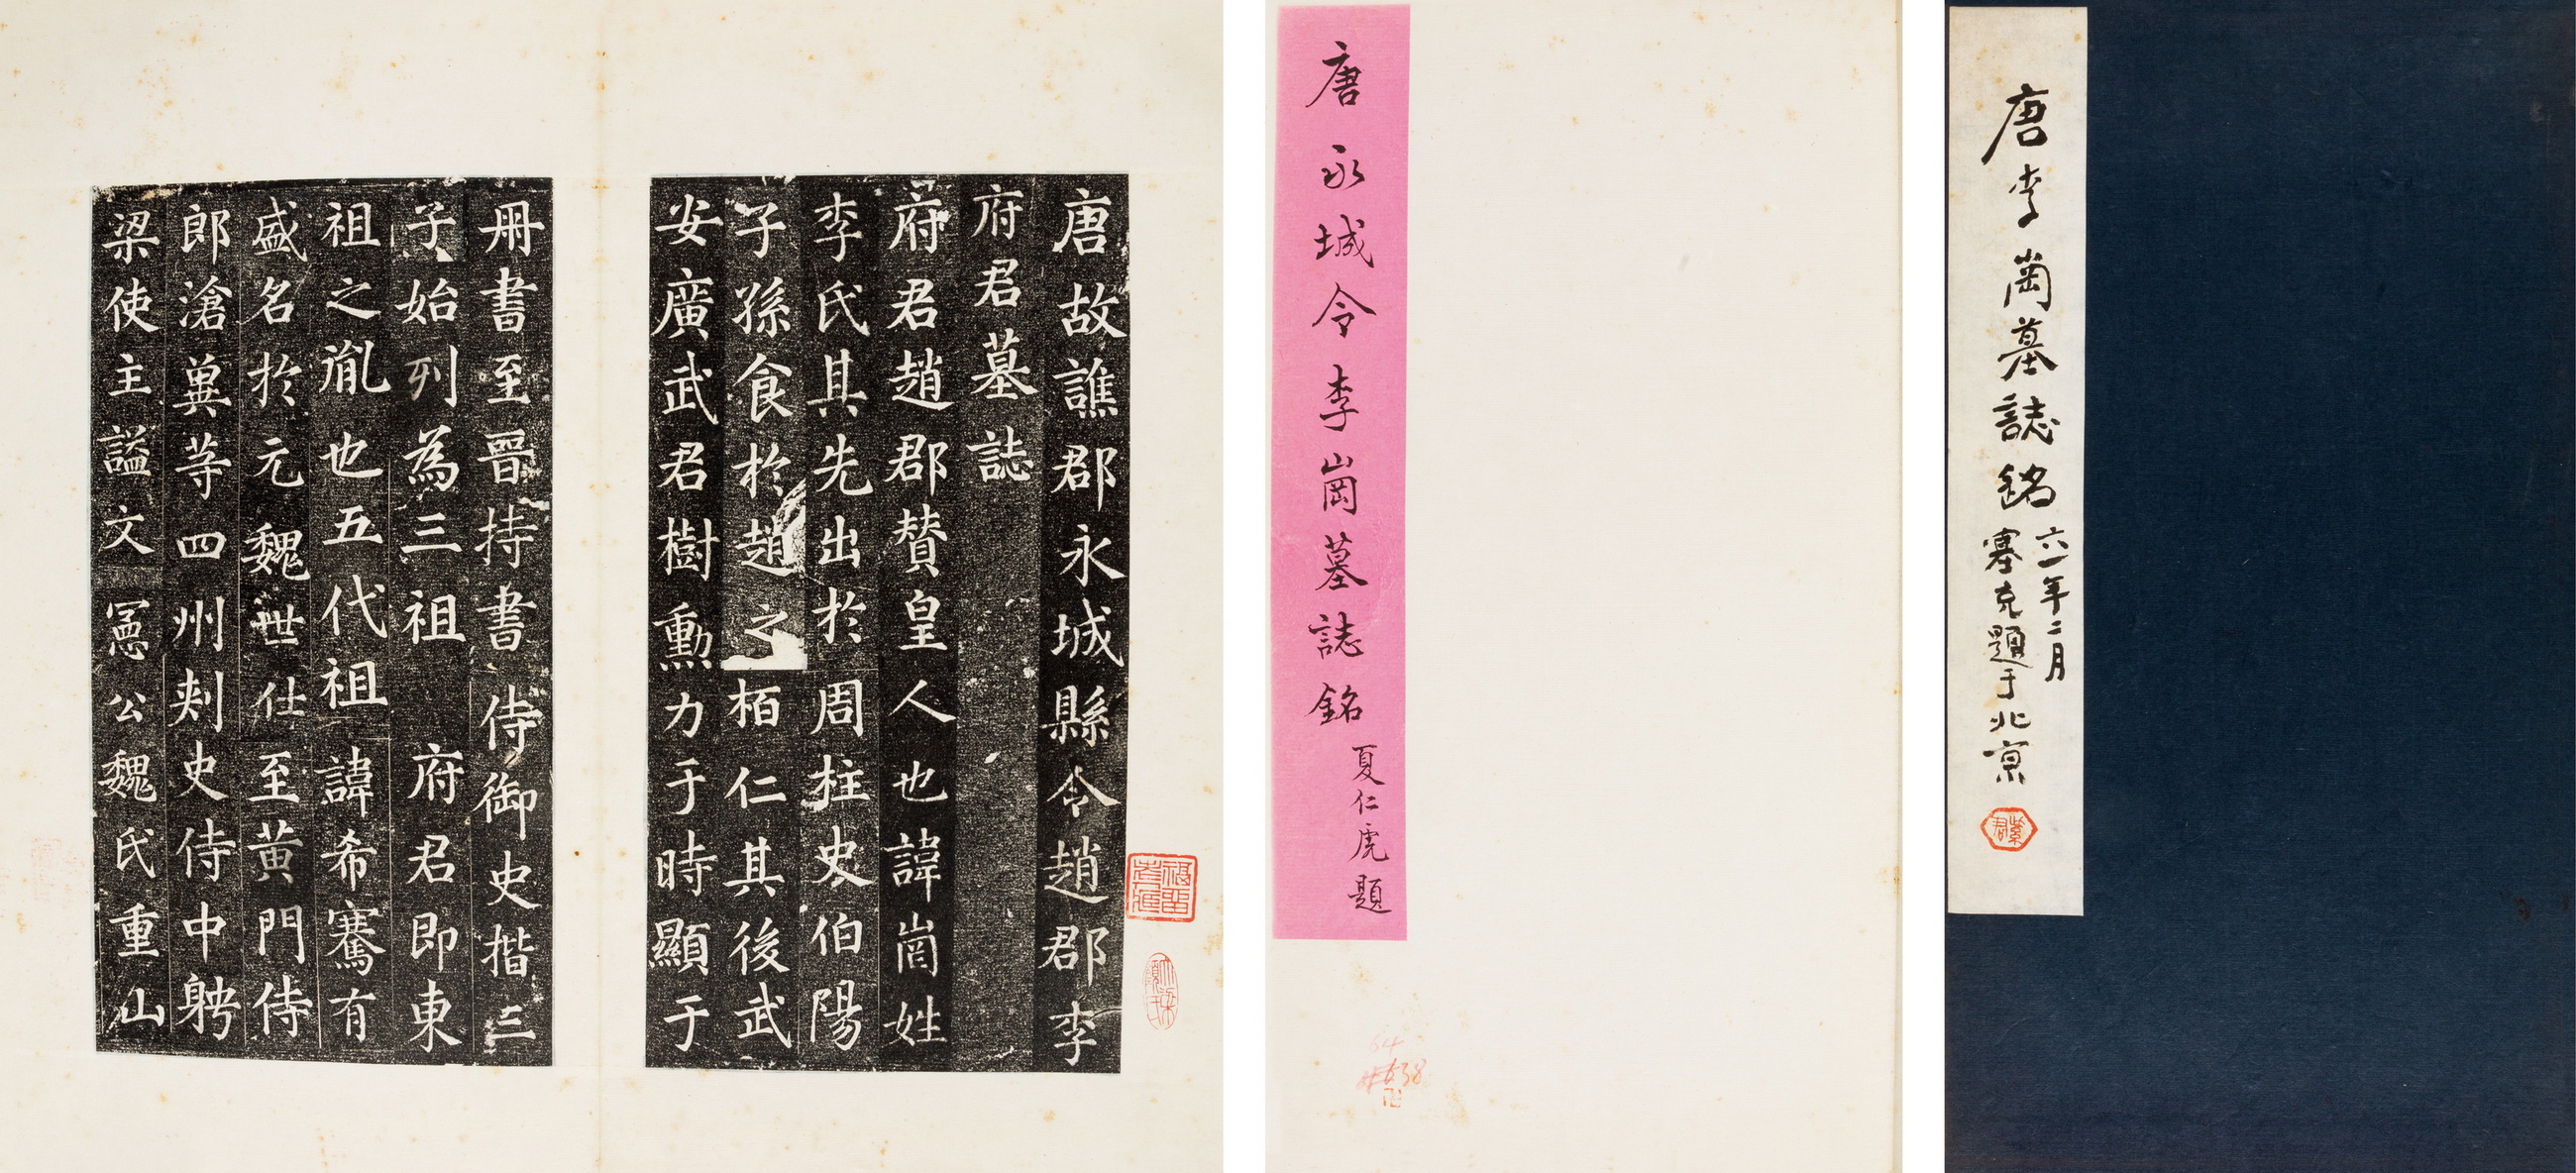 唐李崗墓誌銘
六一年二月
塞克題于北京
唐永城令李崗墓誌銘
夏仁虎題
唐故譙郡永城縣令趙郡李
府君墓誌
府君趙郡贊皇人也諱崗姓
李氏其先出於周柱史伯陽
子孫食於趙之栢仁其後武
安廣武君樹勳力于時顯于
冊書至晉持書侍御史揩三
子始列為三祖府君即東
祖之胤也五代祖諱希騫有
盛名於元魏世仕至黃門侍
郎滄冀等四州刾史侍中聘
梁使主謚文憲公魏氏重山